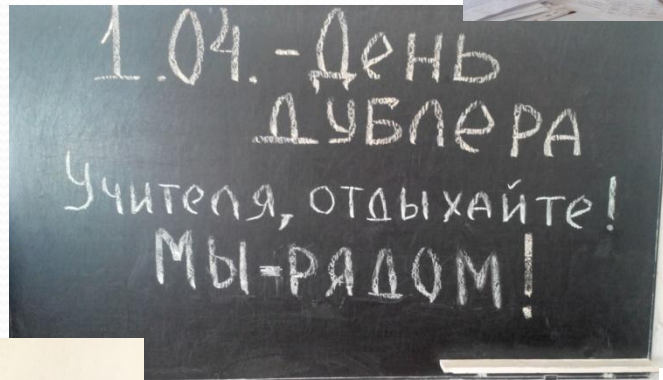 1.04.-День
дублера
Учителя, отдыхайте!
Мы-рядом!